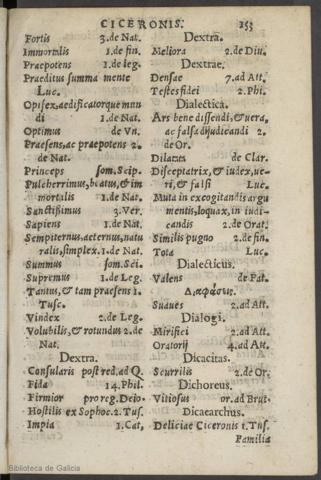 CICERONIS. 153
Fortis 3.de Nat.
Immortalis 1.de fin.
Praepotens 1.de leg.
Praeditus summa mente
Luc.
Opifex, aedificatorque mun
di 1.de Nat.
Optimus de Vn.
Praesens, ac praepotens 2.
de Nat.
Princeps som.Scip.
Pulcherrimus, beatus, & im
mortalis 1.de Nat.
Sanctissimus 3.Ver.
Sapiens 1.de Nat.
Sempiternus, aeternus, natu
ralis, simplex. 1.de Nat.
Summus som.Sci.
Supremus 1.de Leg.
Tantus, & tam praesens 1.
Tusc.
Vindex 2.de Leg.
Volubilis, & rotundus 2.de
Nat.
Dextra.
Consularis post red.ad Q.
Fida 14.Phil.
Firmior pro reg.Deio.
Hostilis ex Sophoc.2.Tus.
Impia 1.Cat.
Dextra.
Meliora 2.de Diu.
Dextrae.
Densae 7.ad Att.
Testes fidei 2.Phi.
Dialectica.
Ars bene disserendi, & vera,
ac falsa dijudicandi 2.
de Or.
Dilatata de Clar.
Disceptatrix, & iudex, ve-
ri, & falsi Luc.
Muta in excogitandis argu
mentis, loquax, in iudi-
candis 2.de Orat.
Similis pugno 2.de fin.
Tota Luc.
Dialecticus.
Valens de Fat.
Διαφάσεις.
Suaues 2.ad Att.
Dialogi.
Mirifici 2.ad Att.
Oratorij 4.ad Att.
Dicacitas.
Scurrilis 2.de Or.
Dichoreus.
Vitiosus or.ad Brut.
Dicaearchus.
Deliciae Ciceronis 1.Tus.
Familia
Biblioteca de Galicia